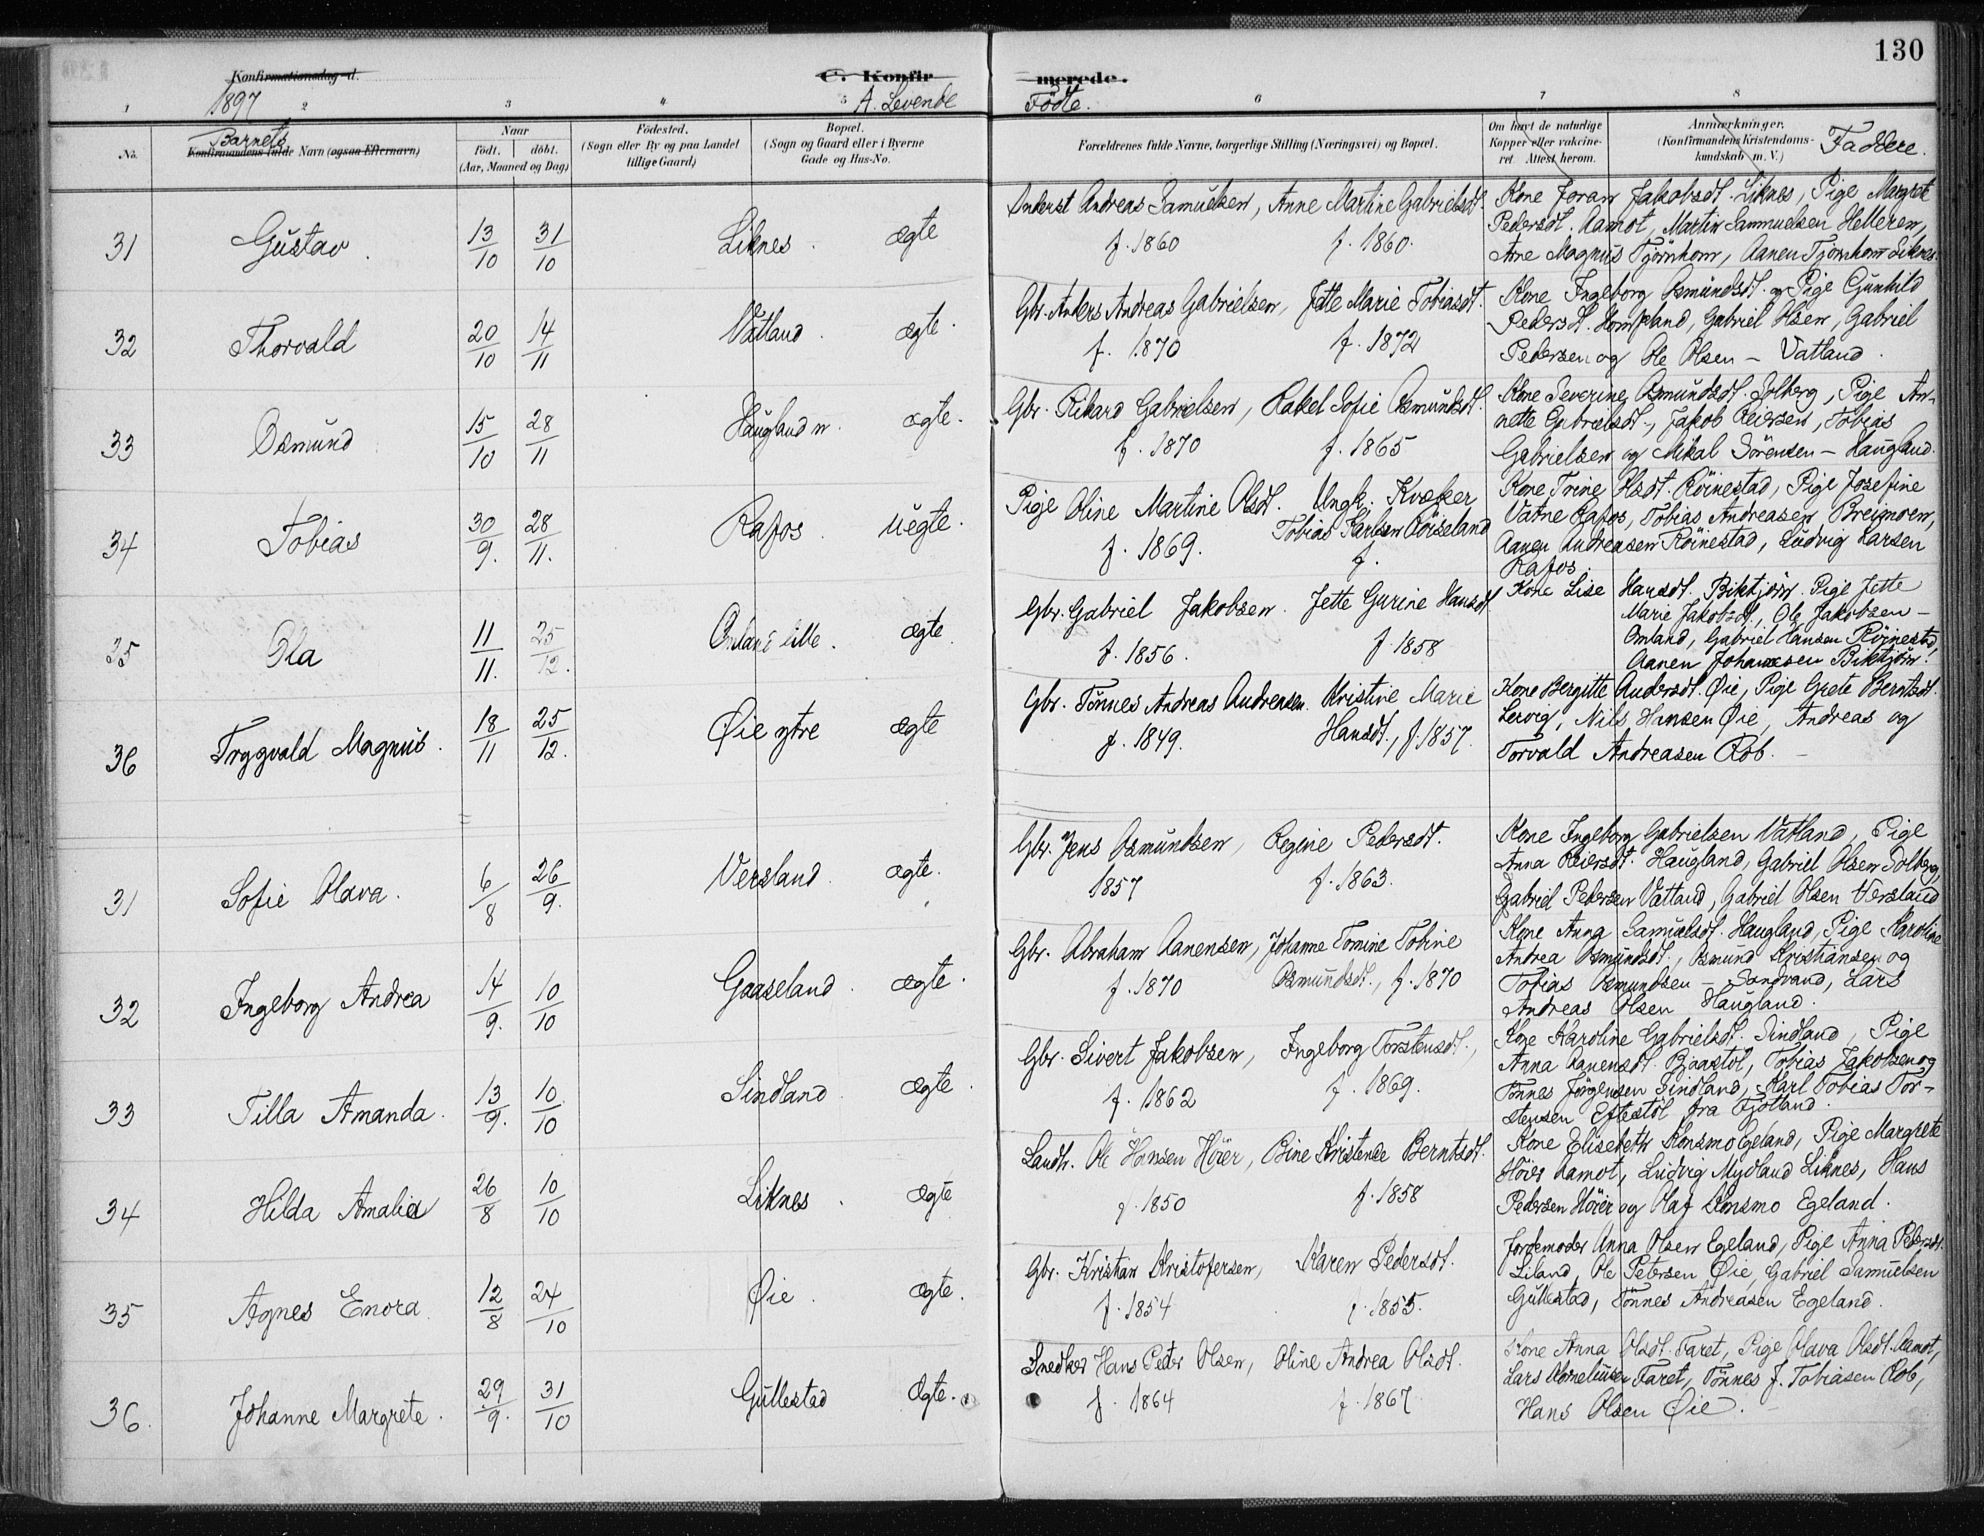 130
Konfirmationsdag d.
C. Konfirmerede.
1897
A. Levende Fødte.
1 2 3 4 5 6 7 8
No.
Barnets
Konfirmandens fulde Navn (ogsaa Efternavn)
Naar
født. døbt.
(Aar, Maaned og Dag)
Fødested.
(Sogn eller By og paa Landet tillige Gaard)
Bopæl.
(Sogn og Gaard eller i Byerne Gade og Hus-No.
Forældrenes fulde Navne, borgerlige Stilling (Næringsvei) og Bopæl.
Om havt de naturlige Kopper eller vakcineret. Attest herom.
Anmærkninger.
(Konfirmandens Kristendomskundskab m. V.)
Faddere.
31 Gustav 13/10 31/10 Liknes. ægte
Andreas Samuelsen, Anne Martine Gabrielsdt.
f. 1860 f. 1860.
Kone Joran Jakobsdt. Liknes, Pige Margrete
Pedersdt. Aamot, Martin Sammuelsen Helleren,
Arne Magnus Tjörnhom, Aanen Tjörnhom Liknes.
32 Thorvald 20/10 14/11 Vatland. ægte.
Gbr. Anders Andreas Gabrielsen, Jette Marie Tobiasdt.
f. 1870 f. 1872
Kone Ingeborg Osmundsdt. og Pige Gunhild
Pedersdt. Hompland, Gabriel Olsen, Gabriel
Pedersen og Ole Olsen – Vatland.
33 Osmund 15/10 28/11 Haugland n. ægte.
Gbr. Rikard Gabrielsen, Rakel Sofie Osmundsdt.
f. 1870 f. 1865
Kone Severine Osmundsdt. Solberg, Pige An-
nette Gabrielsdt., Jakob Reiersen, Tobias
Gabrielsen og Mikal Sörensen – Haugland.
34 Tobias 30/9. 28/11. Rafos. uegte.
Pige Oline Martine Olsdt. Ungk. Kvæker
Tobias Karlsen Röiseland
f. 1869. f.
Kone Trine Olsdt. Röinestad, Pige Josefine
Vatne Rafos, Tobias Andreasen Breimoen,
Aanen Andreasen Röinestad, Ludvig Larsen
Rafos.
35 Ola 11/11. 25/12. Omland lille. ægte
Gbr. Gabriel Jakobsen. Jette Gurine Hansdt
f. 1856. f. 1858
Kone Lise Hansdt. Biktjörn. Pige Jette
Marie Jakobsdt., Ole Jakobsen –
Omland, Gabriel Hansen Röinestad,
Aanen Johannesen Biktjörn.
36 Trygvald Magnus. 18/11 25/12. Øie ytre ægte
Gbr. Tönnes Andreas Andreasen. Kristine Marie
f. 1849. Hansdt., f. 1857.
Kone Bergitte Andersdt. Øie, Pige Grete Berntsdt.
Lervig, Nils Hansen Øie, Andreas og
Torvald Andreasen Rob. –
31 Sofie Olava. 6/8 26/9. Versland. ægte.
Gbr. Jens Osmundsen, Regine Pedersdt.
1857 f. 1863.
Kone Ingeborg Gabrielsen Vatland, Pige
Anna Reiersdt. Haugland, Gabriel Olsen Solberg,
Gabriel Pedersen Vatland, Gabriel Olsen Versland
32 Ingeborg Andrea 14/9. 10/10 Gaaseland. ægte.
Gbr. Abraham Aanensen, Johanne Tomine Tobine
f. 1870 Osmundsdt., f. 1870
Kone Anna Samuelsdt. Haugland, Pige Karoline
Andrea Osmundsdt., Osmund Kristiansen og
Tobias Osmundsen – Sandvand, Lars
Andreas Olsen Haugland.
33 Tilla Amanda. 13/9. 10/10 Sindland. ægte.
Gbr. Sivert Jakobsen, Ingeborg Torstensdt.,
f. 1862 f. 1869.
Kone Karoline Gabrielsdt. Sindland, Pige
Anna Aanensdt. Baastöl, Tobias Jakobsen og
Tönnes Jörgensen Sindland, Karl Tobias Tor-
stensen Eftestöl fra Fjotland.
34 Hilda Amalia 26/8 10/10 Liknes. ægte
Landh. Ole Hansen Höier, Bine Kristense Berntsdt.
f. 1850 f. 1858
Kone Elisebeth Konsmo Egeland, Pige Margrete
Höier Aamot, Ludvig Mydland Liknes, Hans
Pedersen Höier og Olaf Konsmo Egeland.
35 Agnes Enora. 12/8 24/10 Øie. ægte.
Gbr. Kristian Kristofersen, Karen Pedersdt.
f. 1854 f. 1855.
Jordemoder Anna Olsen Egeland, Pige Anna Pedersdt.
Liland, Ole Petersen Øie, Gabriel Samuelsen
Gullestad, Tönnes Andreasen Egeland.
36. Johanne Margrete. 29/9. 31/10 Gullestad ægte.
Snedker Hans Peter Olsen, Oline Andrea Olsdt.
f. 1864 f. 1867
Kone Anna Olsdt. Faret, Pige Olava Olsdt. Aamot,
Lars Korneliusen Faret, Tönnes J. Tobiasen Rob,
Hans Olsen Øie.